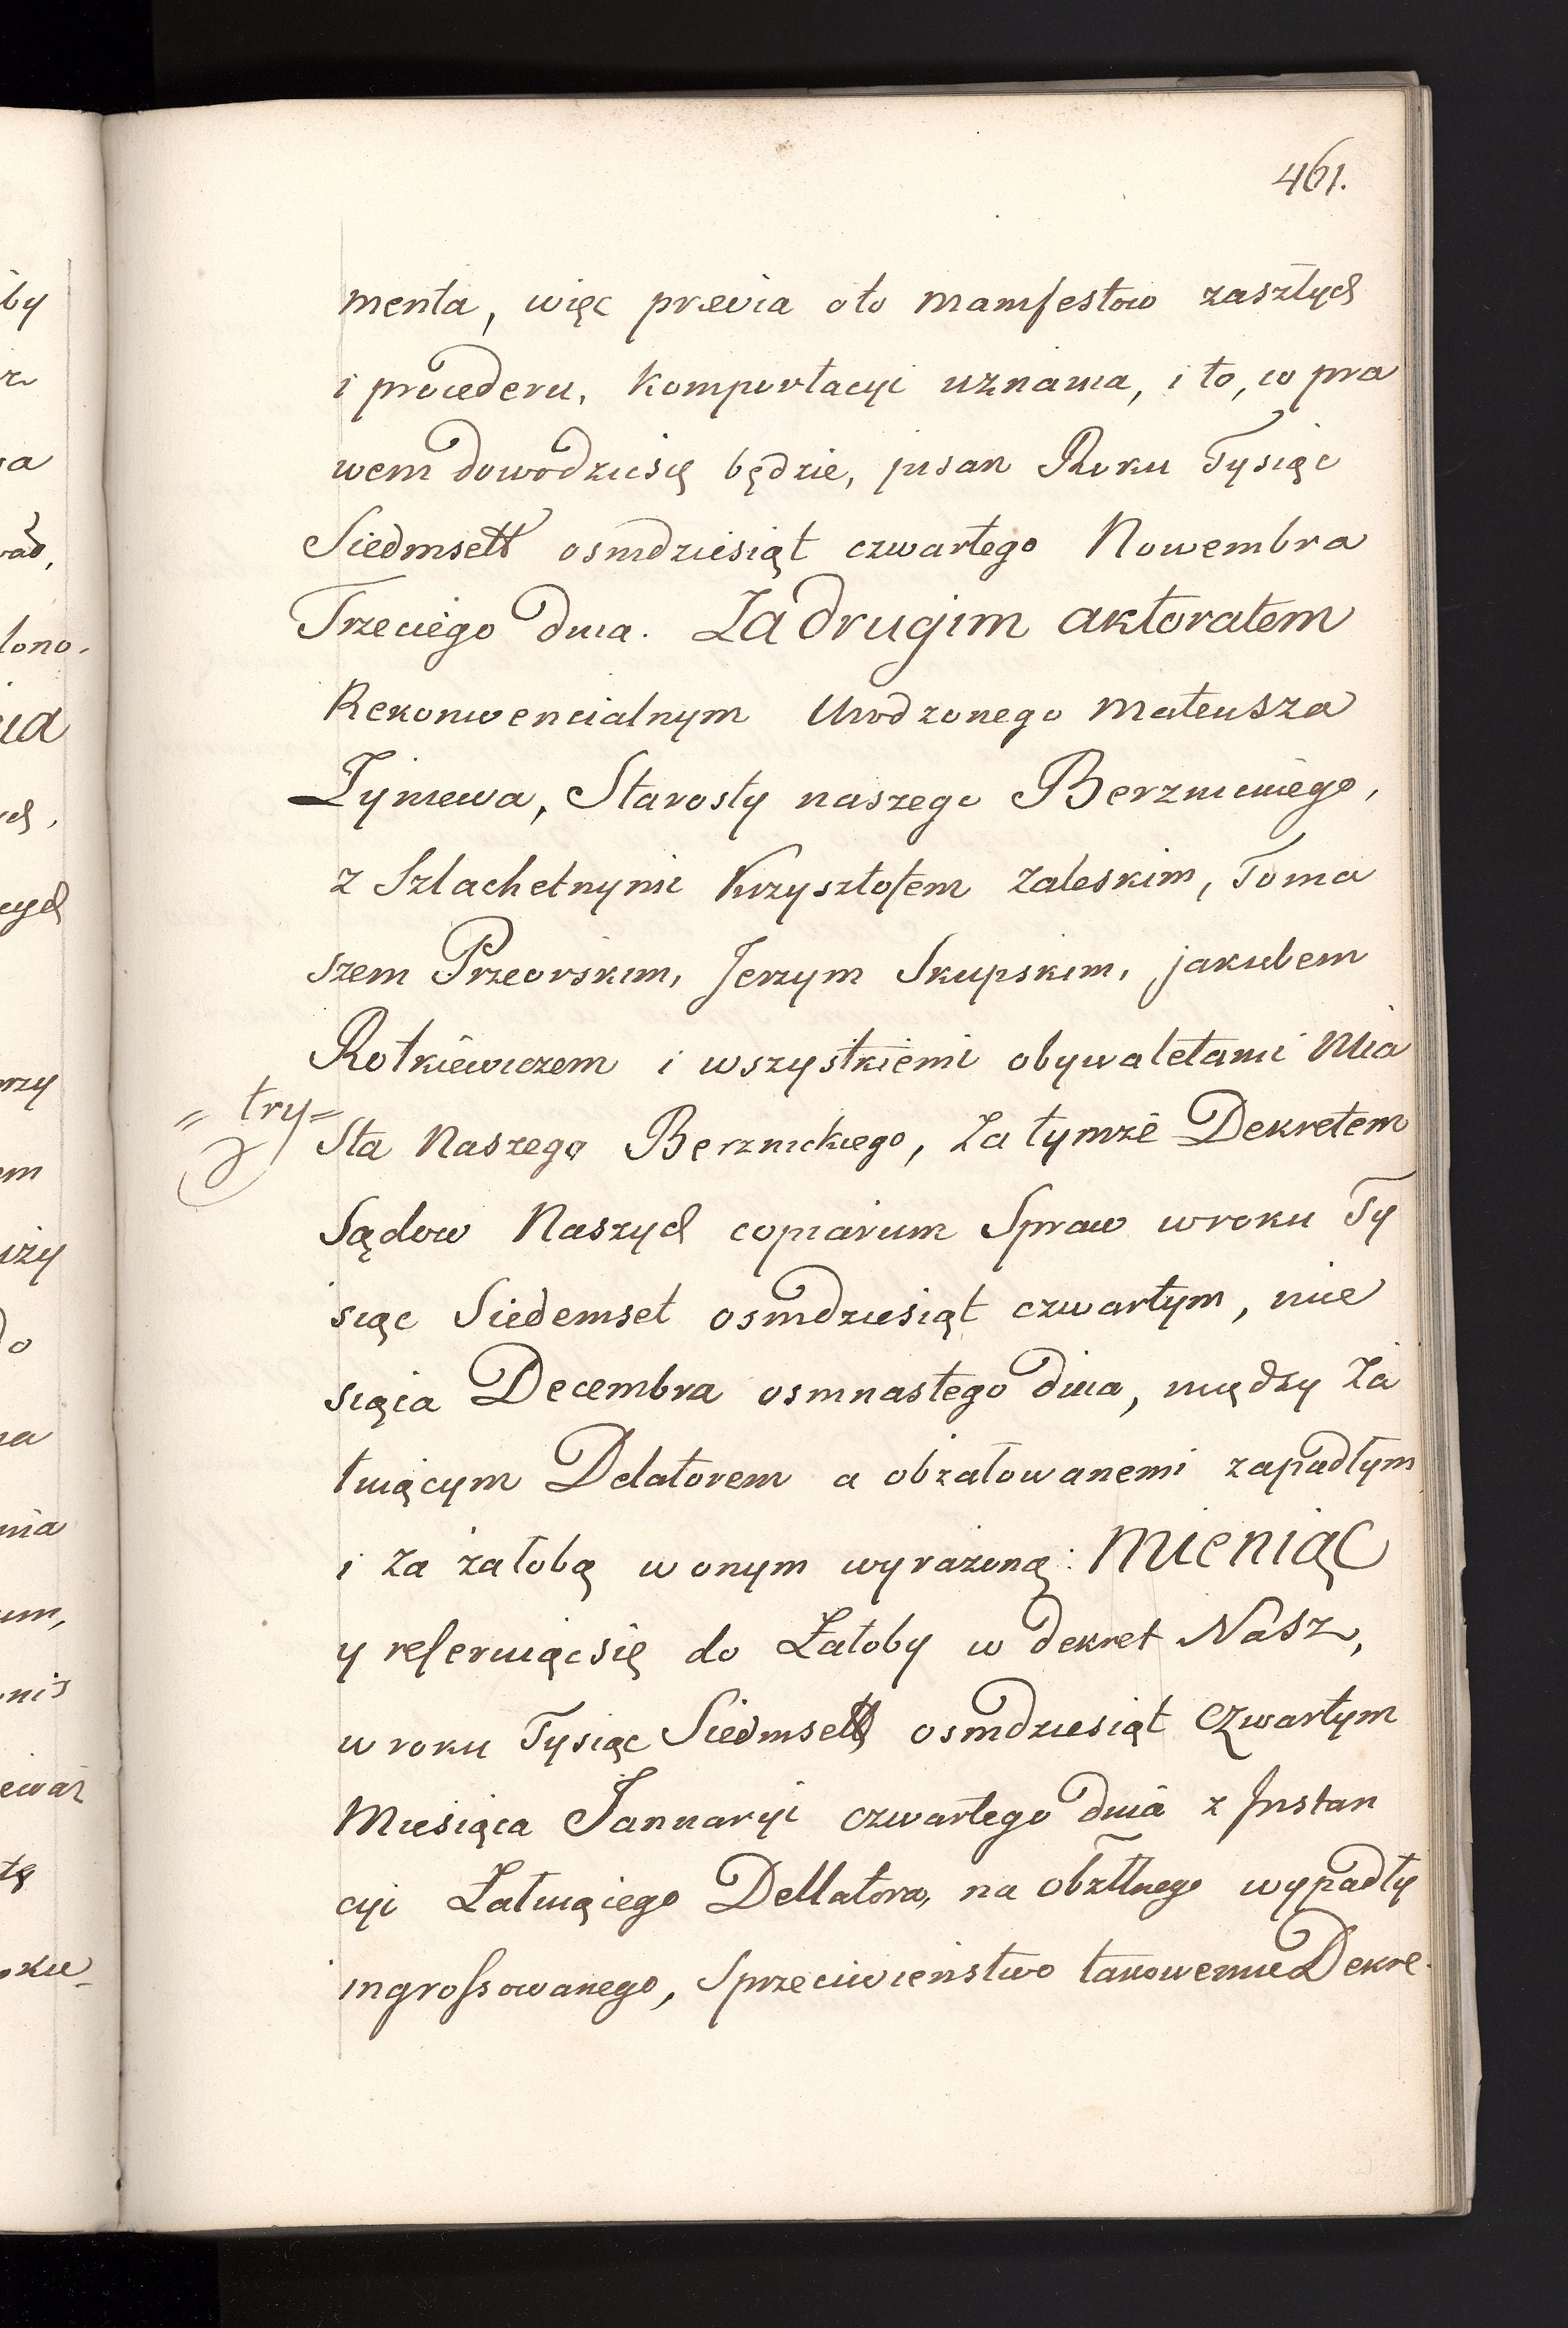 461.
menta, więc prævia oto manifestow zaszłych
i procederu, Komportacyi uznania, i to, co pra
wem dowodzić się będzie, pisan Roku Tysiąc
Siedmsett osmdziesiąt czwartego Nowembra
Trzeciego dnia. Za drugim aktoratem
Rekonwencialnym Urodzonego Mateusza
Żyniewa, Starosty naszego Berznickiego,
z Szlachetnymi Krzysztofem Zaleskim, Toma
szem Przeorskim, Jerzym Skupskim, jakubem
Rotkiewiczem i wszystkiemi obywatelami Mia
" try=
sta Naszego Berznickiego, za tymże Dekretem
Sądow Naszych copiarum Spraw w roku Ty
siąc Siedemset osmdziesiąt czwartym, mie
siąca Decembra osmnastego dnia, między Ża
łuiącym Delatorem a obżałowanemi zapadłym
i za żałobą w onym wyrażoną: Mieniąc
y referuiąc się do Żałoby w dekret Nasz,
w roku Tysiąc Siedmsett osmdziesiąt czwartym
Miesiąca Januaryi czwartego dnia z Instan
cyi Żałuiącego Dellatora, na obżłłnego wypadły
ingrossowanego, Sprzeciwieństwo takowemu Dekre-